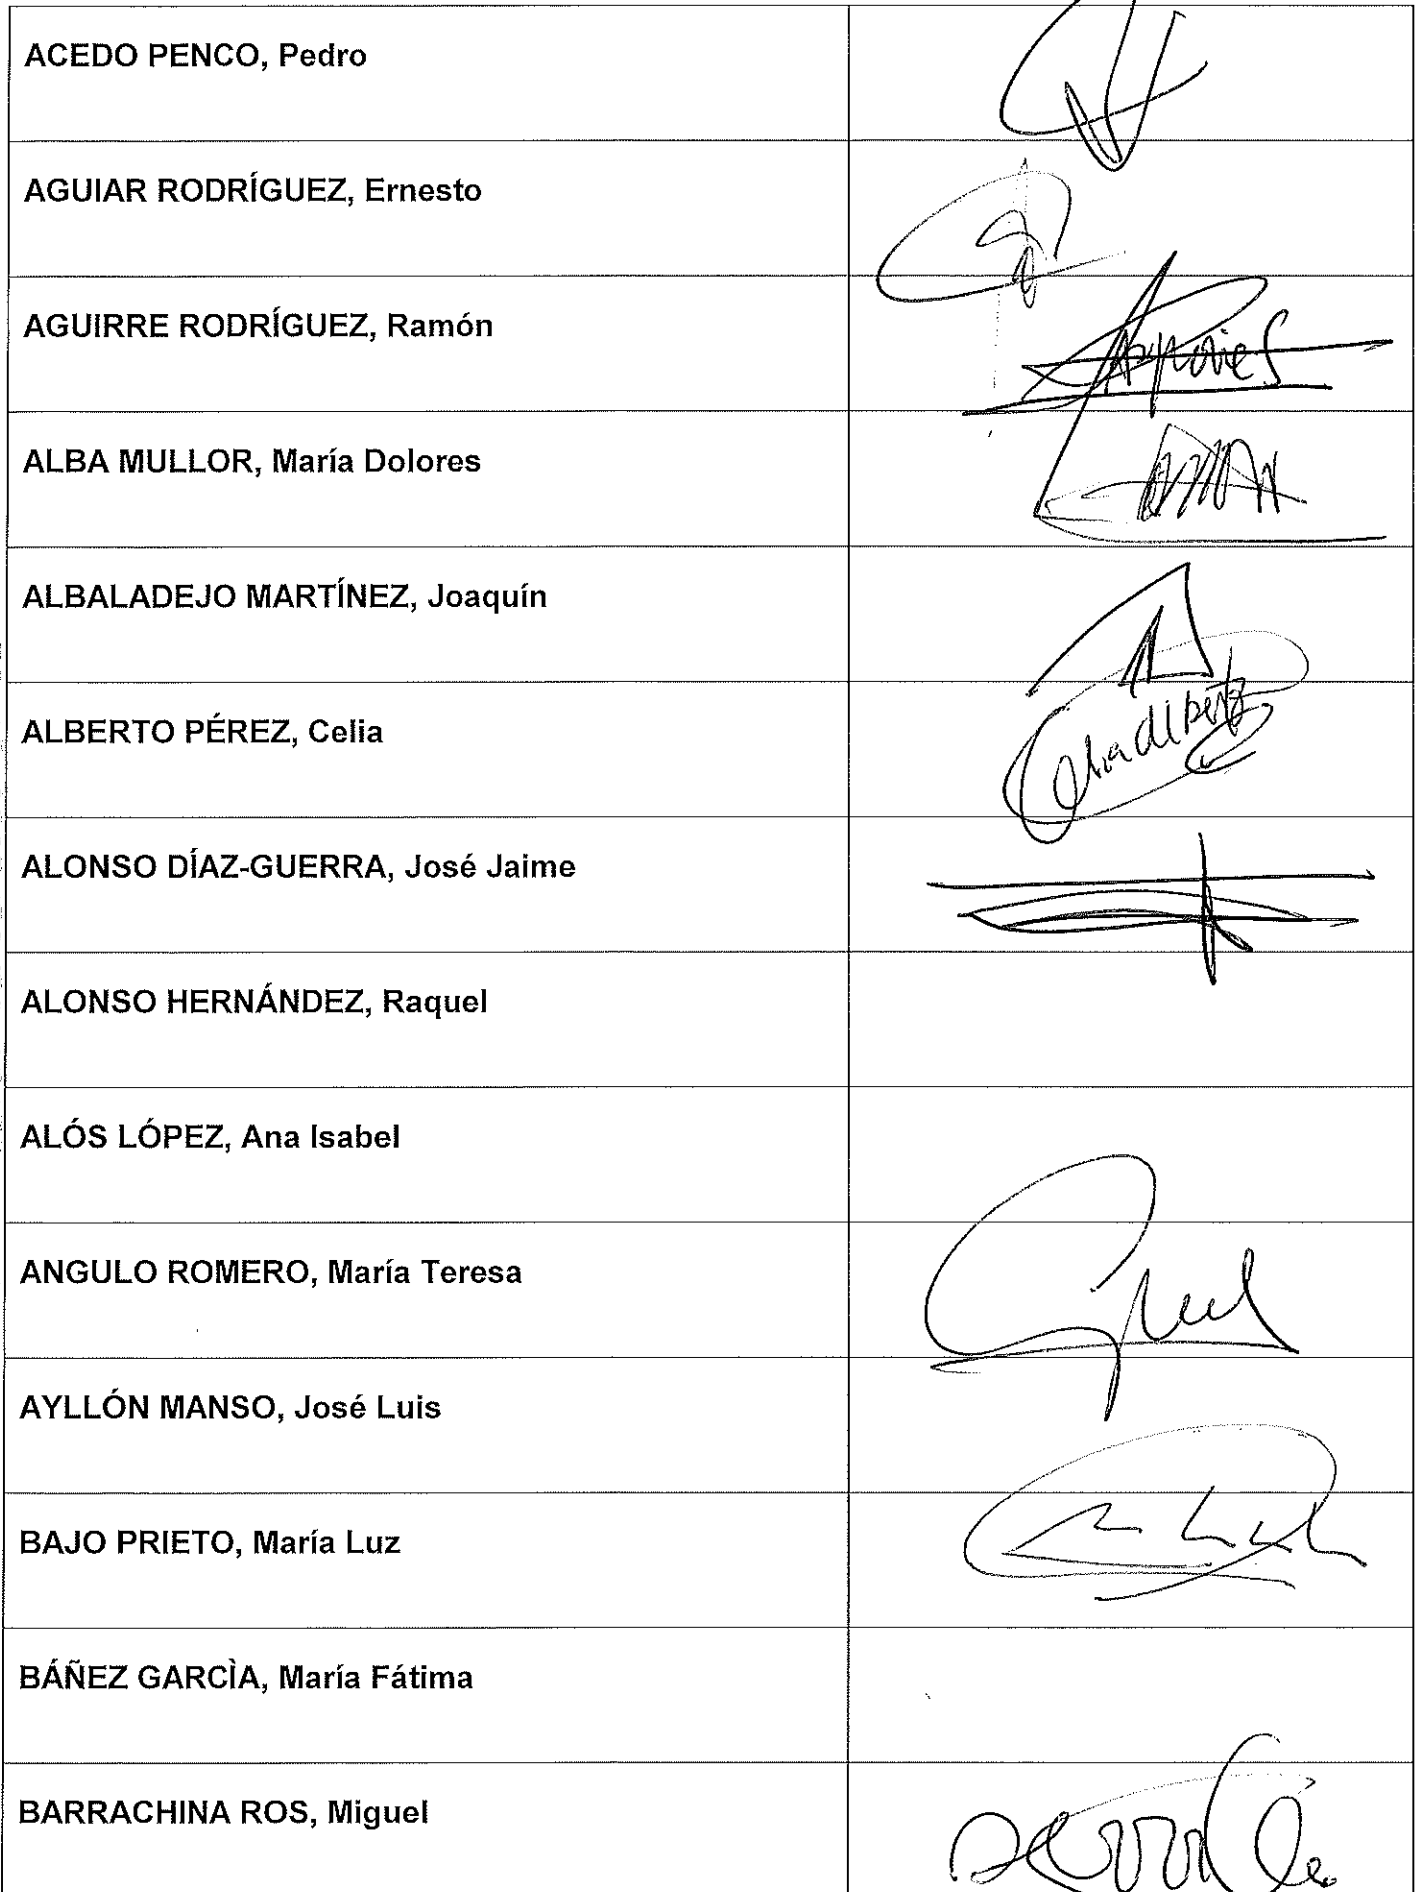 ACEDO PENCO, Pedro
AGUIAR RODRÍGUEZ, Ernesto
AGUIRRE RODRÍGUEZ, Ramón
ALBA MULLOR, María Dolores
ALBALADEJO MARTÍNEZ, Joaquín
ALBERTO PÉREZ, Celia
ALONSO DÍAZ-GUERRA, José Jaime
ALONSO HERNÁNDEZ, Raquel
ALÓS LÓPEZ, Ana Isabel
ANGULO ROMERO, María Teresa
AYLLÓN MANSO, José Luis
BAJO PRIETO, María Luz
BÁÑEZ GARCÌA, María Fátima
BARRACHINA ROS, Miguel